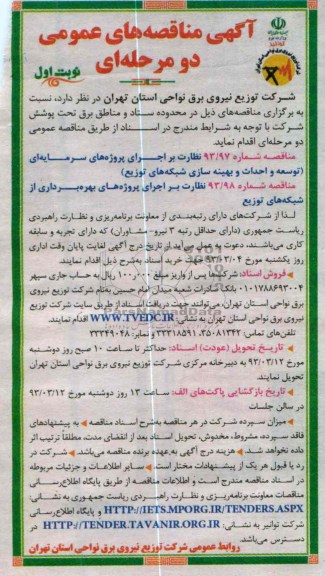 آگهی مناقصه‌های عمومی
دو مرحله‌ای
نوبت اول
شرکت توزیع نیروی برق نواحی استان تهران در نظر دارد، نسبت
به برگزاری مناقصه‌های ذیل در محدوده ستاد و مناطق برق تحت پوشش
شرکت با توجه به شرایط مندرج در اسناد از طریق مناقصه عمومی
دو مرحله‌ای اقدام نماید.
مناقصه شماره ۹۳/۹۷ نظارت بر اجرای پروژه‌های سرمایه‌ای
(توسعه و احداث و بهینه سازی شبکه‌های توزیع)
مناقصه شماره ۹۳/۹۸ نظارت بر اجرای پروژه‌های بهره‌برداری از
شبکه‌های توزیع
لذا از شرکت‌های دارای رتبه‌بندی از معاونت برنامه‌ریزی و نظارت راهبردی
ریاست جمهوری (دارای حداقل رتبه ۳ نیرو- مشاوران) که دارای تجربه و سابقه
کاری می‌باشند، دعوت به عمل می‌آید از تاریخ درج آگهی لغایت پایان وقت اداری
روز یکشنبه مورخ ۹۳/۰۳/۰۴ جهت خرید اسناد به‌شرح ذیل اقدام نمایند.
فروش اسناد: شرکت‌ها پس از واریز مبلغ ۱۰۰,۰۰۰ ریال به حساب جاری سپهر
۰۱۰۱۷۸۸۶۹۳۰۰۴ بانک صادرات شعبه میدان امام حسین به‌نام شرکت توزیع نیروی
برق نواحی استان تهران، می‌توانند جهت دریافت اسناد از طریق سایت شرکت توزیع
نیروی برق نواحی استان تهران به نشانی WWW.TVEDC.IR اقدام نمایند.
تلفن‌های تماس: ۳۵۰۸۱۳۴۲، ۳۳۳۱۸۵۹۱ و نمابر: ۳۳۳۴۹۰۴۸
تاریخ تحویل (عودت) اسناد: حداکثر تا ساعت ۱۰ صبح روز دوشنبه
مورخ ۹۳/۰۳/۱۲ به دبیرخانه مرکزی شرکت توزیع نیروی برق نواحی استان تهران
تحویل نمایند.
تاریخ بازگشایی پاکت‌های الف: ساعت ۱۳ روز دوشنبه مورخ ۹۳/۰۳/۱۲
در سالن جلسات
میزان سپرده شرکت در هر مناقصه به‌شرح اسناد مناقصه به پیشنهادهای
فاقد سپرده، مشروط، مخدوش، تحویل اسناد بعد از انقضای مدت، مطلقا ترتیب اثر
داده نخواهد شد. هزینه درج آگهی به عهده برنده مناقصه می‌باشد. شرکت در
رد یا قبول هر یک از پیشنهادات مختار است. سایر اطلاعات و جزئیات مربوطه
در اسناد مناقصه مندرج است و اطلاعات مناقصه از طریق پایگاه اطلاع‌رسانی
مناقصات معاونت برنامه‌ریزی و نظارت راهبردی ریاست جمهوری به نشانی:
HTTP://IETS.MPORG.IR/TENDERS.ASPX و پایگاه اطلاع‌رسانی
شرکت توانیر به نشانی: HTTP://TENDER.TAVANIR.ORG.IR در
دسترس می‌باشد.
روابط عمومی شرکت توزیع نیروی برق نواحی استان تهران